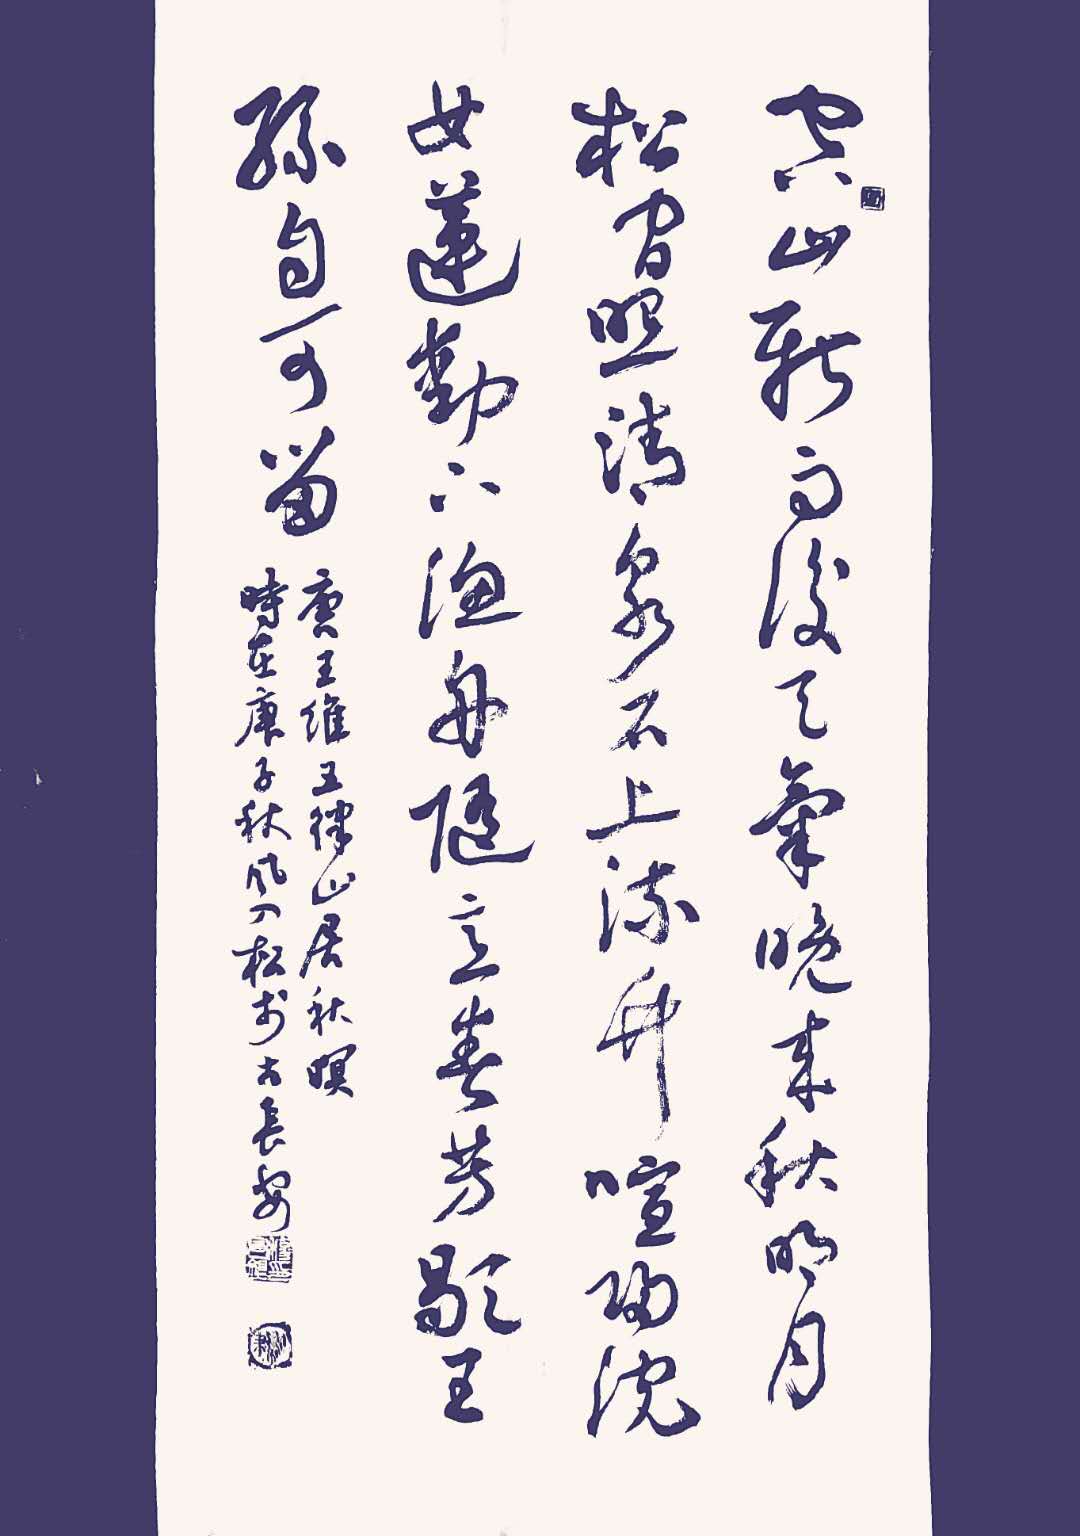 空山新雨後天氣晚來秋明月
松間照清泉石上流竹喧歸浣
女蓮動下漁舟隨意春芳歇王
孫自可留
唐王維五律山居秋暝
時在庚子秋風松於古長安